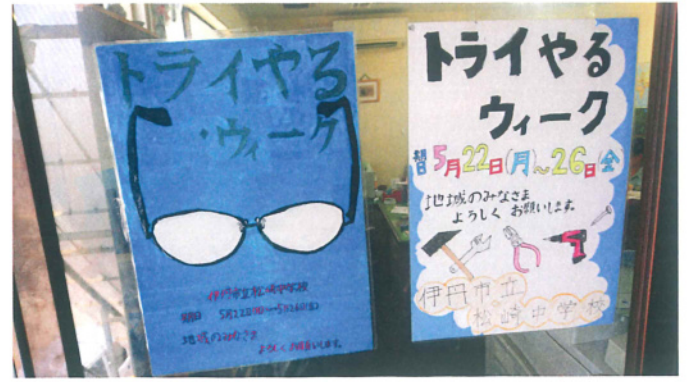 トライやる
・ウィーク
伊丹市立松崎中学校
期日 5月22日(月)〜5月26日(金)
地域のみなさま
よろしくお願いします。
トライやる
ウィーク
期日 5月22日(月)〜26日(金)
地域のみなさま
よろしく お願いします。
伊丹市立
松崎中学校